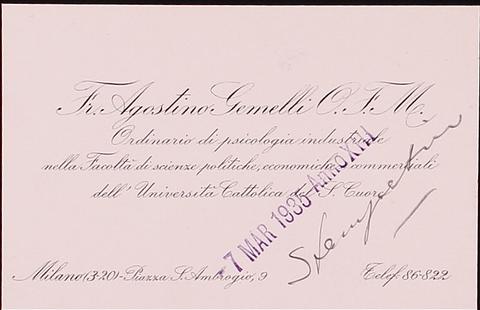 Fr. Agostino Gemelli O. F. M.
Ordinario di psicologia industriale
nella Facoltà di scienze politiche, economiche e commerciali
dell' Università Cattolica del S. Cuore
-7 MAR 1935 Anno XIII
Milano (3-20) - Piazza S. Ambrogio, 9
Telef. 86-822